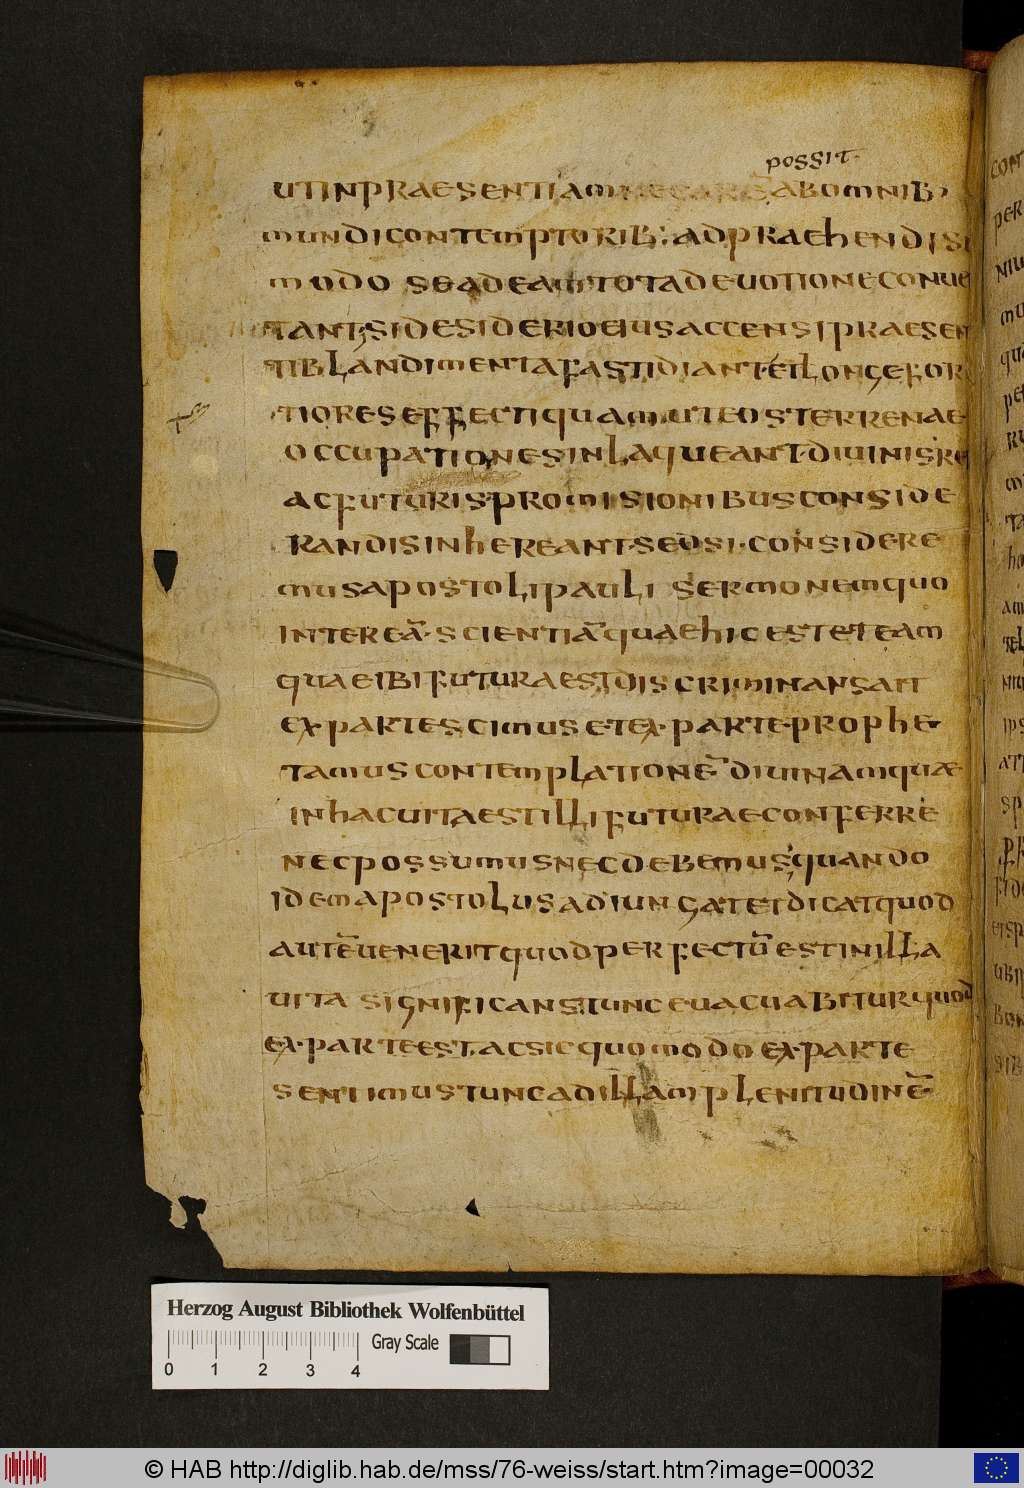 possit·
UTINPRAESENTIAM NECARE ABOMNIB·
MUNDICONTEMPTORIB· ADPRAEHENDISI
MODO SEADEAM TOTADEUOTIONECONUER
TANT·SIDESIDERIOEIUSACCENSIPRAESEN
TIBLANDIMENTAFASTIDIANT·ETLONGEFOR
TIORESEFFECTIQUAMUTEOSTERRENAE
OCCUPATIONESINLAQUEANT·DIUINISRE
ACFUTURISPROMISIONIBUSCONSIDE
RANDISINHEREANT·SEDSI·CONSIDERE
MUSAPOSTOLIPAULI SERMONEMQUO
INTEREĀ·SCIENTIĀQUAEHICESTETEAM
QUAEIBIFUTURAESTDISCRIMINANSAIT
EX·PARTESCIMUSETEX·PARTE·PROPHE
TAMUSCONTEMPLATIONĒDIUINAMQUAE
INHACUITAESTILLIFUTURAECONFERRE
NECPOSSUMUSNECDEBEMUS·QUANDO
IDEMAPOSTOLUSADIUNGATETDICATQUOD
AUTĒUENERITQUODPERFECTŪESTINILLA
UITA SIGNIFICANSTUNCEUACUABITURQUOD
EX·PARTEEST·ACSICQUOMODOEX·PARTE
SENTIMUSTUNCADILLAMPLENITUDINĒ
Herzog August Bibliothek Wolfenbüttel
Gray Scale
0 1 2 3 4
© HAB http://diglib.hab.de/mss/76-weiss/start.htm?image=00032